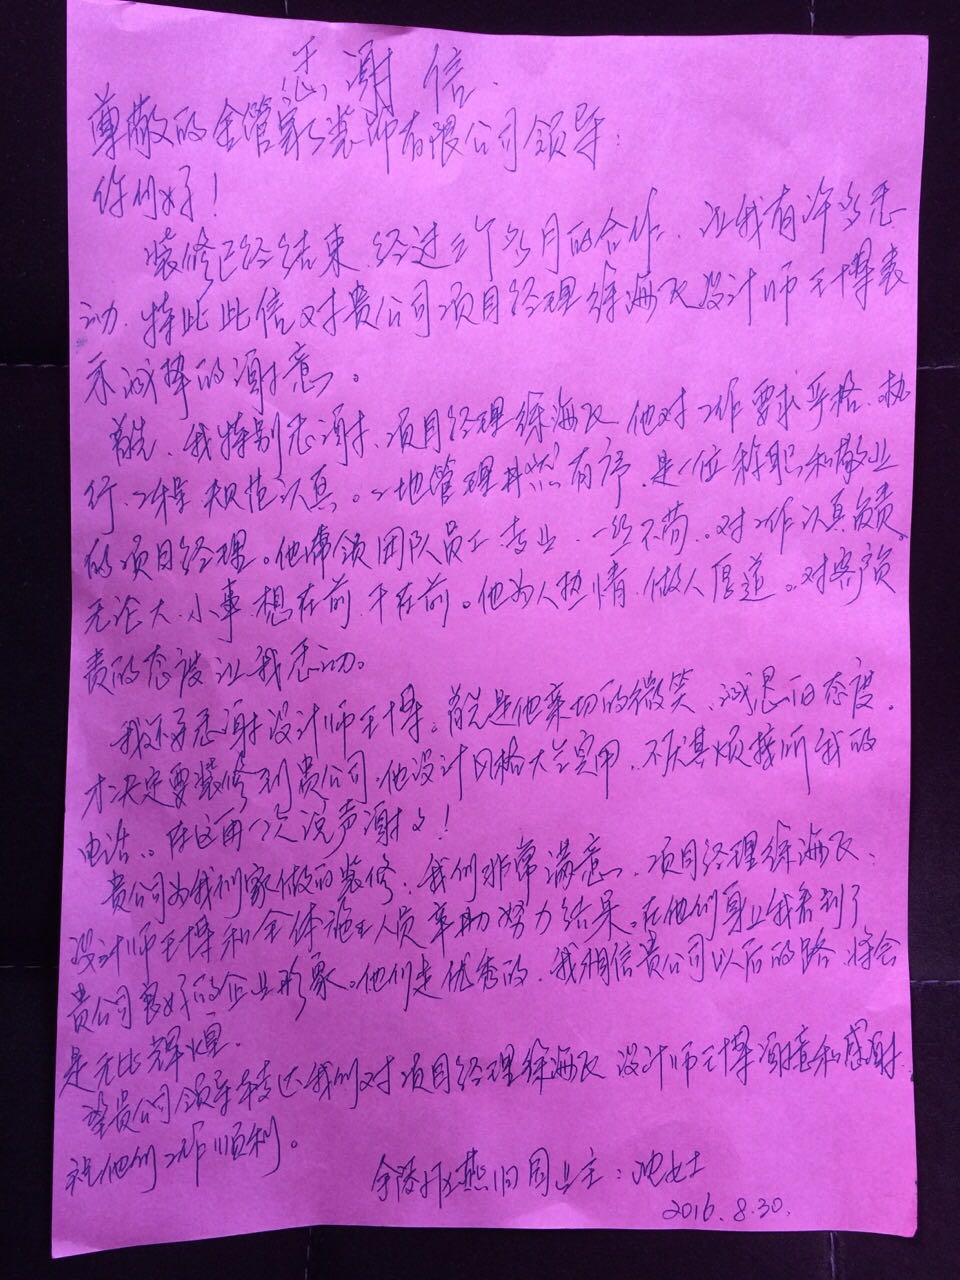 感谢信
尊敬的金管家装饰有限公司领导：
你们好！
装修已经结束，经过三个多月的合作，让我有许多感
动，特此此信对贵公司项目经理徐海飞设计师王博表
示诚挚的谢意。
首先、我特别感谢、项目经理徐海飞他对工作要求严格、执
行、工程规范认真。工地管理井然有序，是一位称职和敬业
的项目经理。他带领团队员工专业、一丝不苟。对工作认真负责。
无论大、小事，想在前，干在前。他为人热情，做人厚道。对客户负
责的态度让我感动。
我还要感谢设计师王博。首先是他亲切的微笑、诚恳的态度。
才决定要装修到贵公司，他设计风格大气实用，不厌其烦接听我的
电话。在这再一次说声谢谢！
贵公司为我们家做的装修，我们非常满意，项目经理徐海飞、
设计师王博和全体施工人员辛勤努力结果。在他们身上我看到了
贵公司良好的企业形象。他们是优秀的，我相信贵公司以后的路，将会
是无比辉煌。
望贵公司领导转达我们对项目经理徐海飞 设计师王博谢意和感谢.
祝他们工作顺利。
金陵社区燕归园业主：沈女士
2016.8.30.